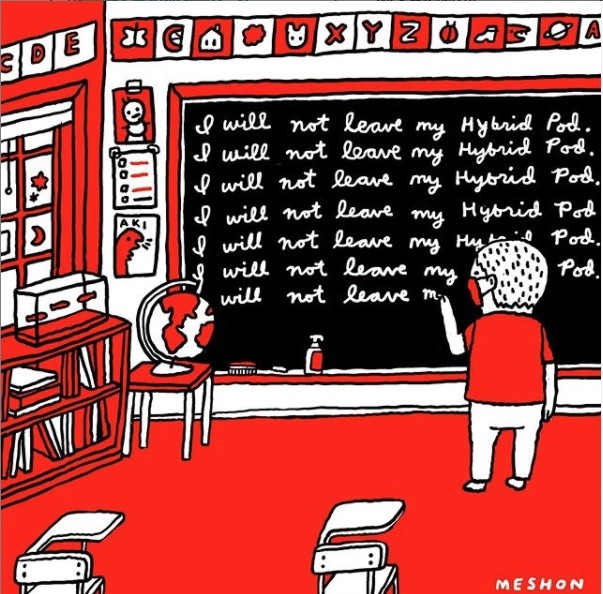 C D E
X Y Z A
I will not leave my Hybrid Pod.
I will not leave my Hybrid Pod.
I will not leave my Hybrid Pod.
I will not leave my Hybrid Pod
I will not leave my Hy Pod.
I will not leave my Pod.
I will not leave m
AKI
MESHON